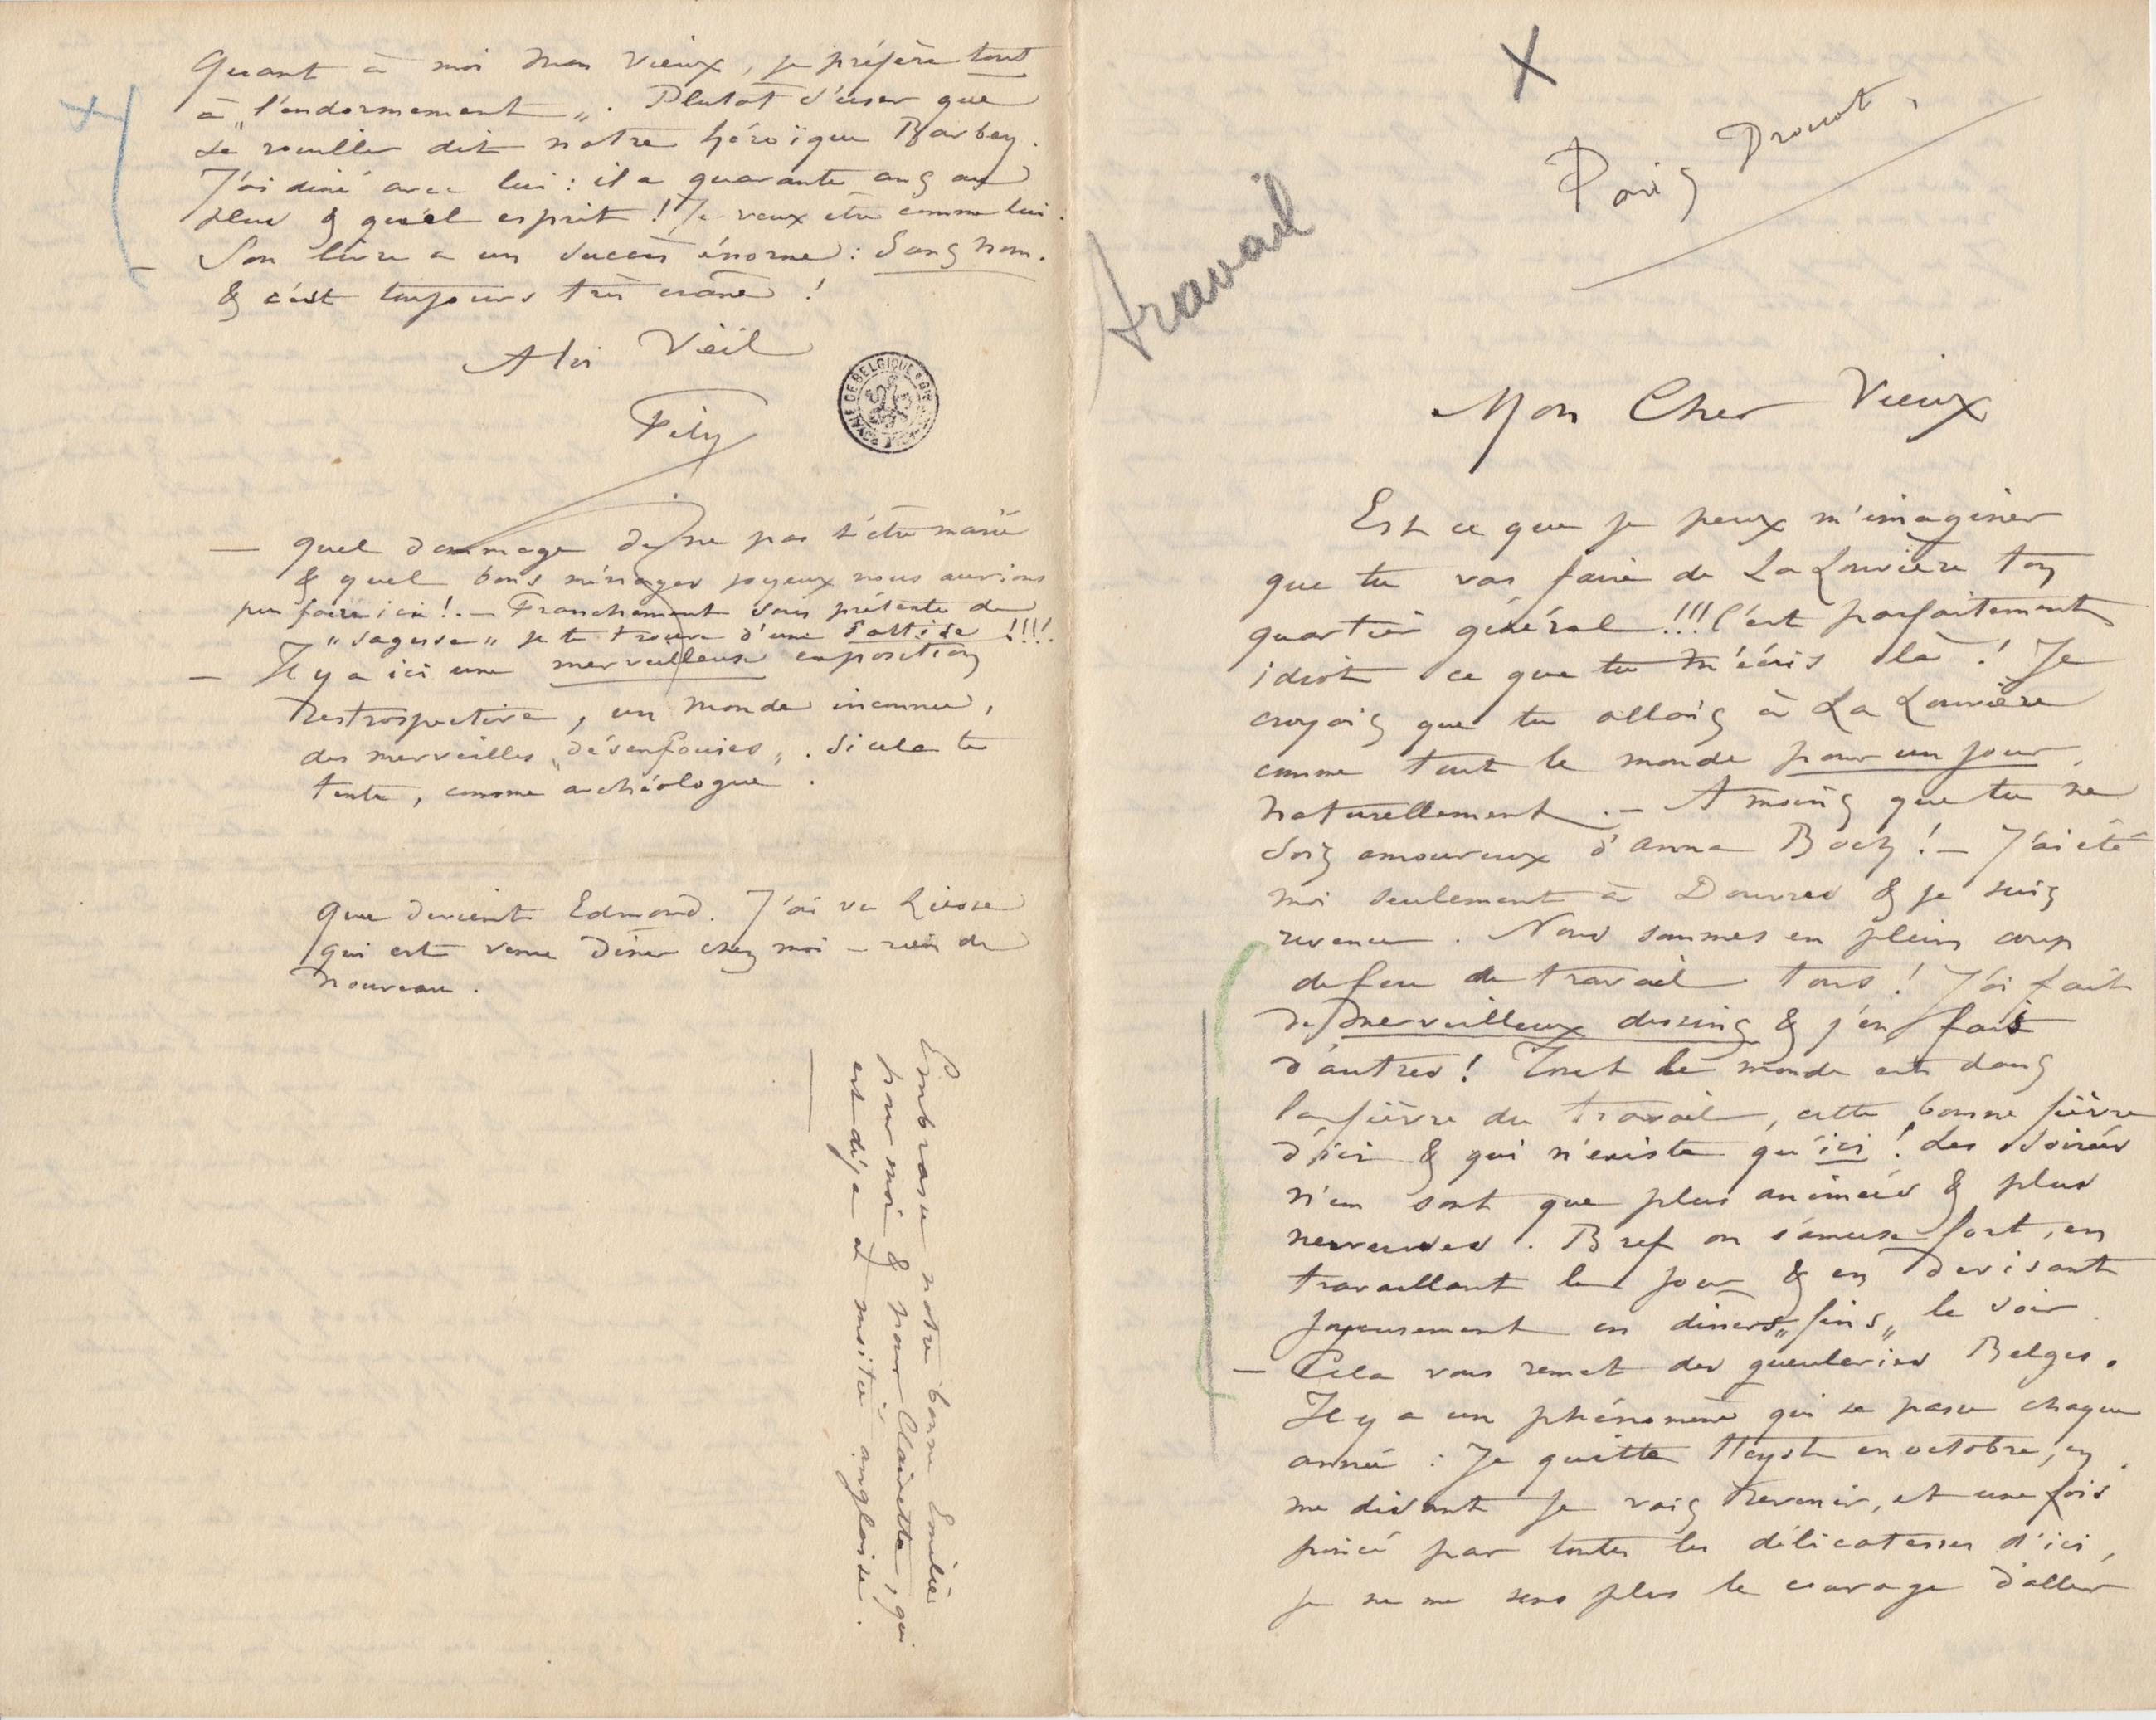 Paris Drouot,
travail
Mon Cher Vieux
Est ce que je peux m'imaginer
que tu vas faire de La Louvière ton
quartier général !!! C'est parfaitement
idiot ce que tu m'écris là ! Je
croyais que tu allais à La Louvière
comme tout le monde pour un jour,
naturellement. — A moins que tu ne
sois amoureux d'Anna Boch ! — J'ai été
moi seulement à Douvres & je suis
revenu. Nous sommes en plein coup
de feu de travail tous ! J'ai fait
de merveilleux dessins & j'en fais
d'autres ! Tout le monde est dans
la fièvre du travail, cette bonne fièvre
d'ici & qui n'existe qu'ici ! Les soirées
n'en sont que plus animées & plus
nerveuses. Bref on s'amuse fort, en
travaillant le jour & en devisant
joyeusement en diners „fins„ le soir.
— Cela vous remet des gueuleries Belges.
Il y a un phénomène qui se passe chaque
année : Je quitte Heyst en octobre, en
me disant je vais revenir, et une fois
pincé par toutes les délicatesses d'ici,
je ne me sens plus le courage d'aller
Quant à moi mon vieux, je préfère tout
à „l'endormement„. Plutot s'user que
se rouiller dit notre héroïque Barbey.
J'ai diné avec lui : il a quarante ans au
plus & quel esprit ! Je veux etre comme lui.
— Son livre a un succès énorme : Sans nom.
& c'est toujours très crâne !
A toi Vieil
Fély
— Quel dommage de ne pas t'être marié
& quel bons ménages joyeux nous aurions
pu faire ici ! — Franchement sous prétexte de
"sagesse" je te trouve d'une sottise !!!!
— Il y a ici une merveilleuse exposition
retrospective, un monde inconnu,
des merveilles „désenfouies„. Si cela te
tente, comme archéologue.
Que devient Edmond. J'ai vu Liesse
qui est venu diner chez moi — rien de
nouveau.
Embrasse notre bonne Emilie
pour moi & pour Clairette, qui
est déja à moitié anglaise.